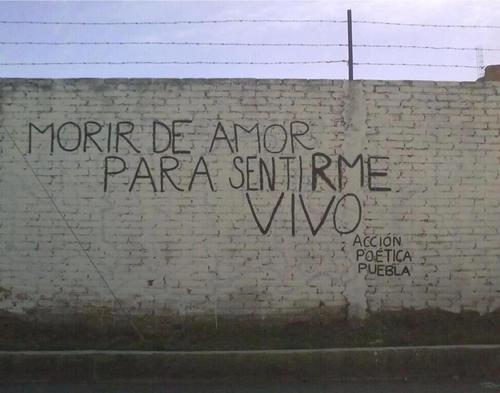 MORIR DE AMOR
PARA SENTIRME
VIVO
ACCIÓN
POÉTICA
PUEBLA